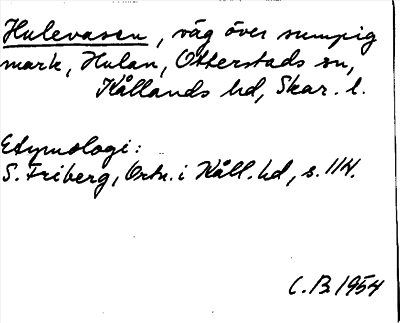 Hulevasen, väg över sumpig
mark, Hulan, Otterstads sn,
Kållands hd, Skar. l.
Etymologi:
S. Friberg, Ortn. i Kåll. hd, s. 114.
C.B. 1954